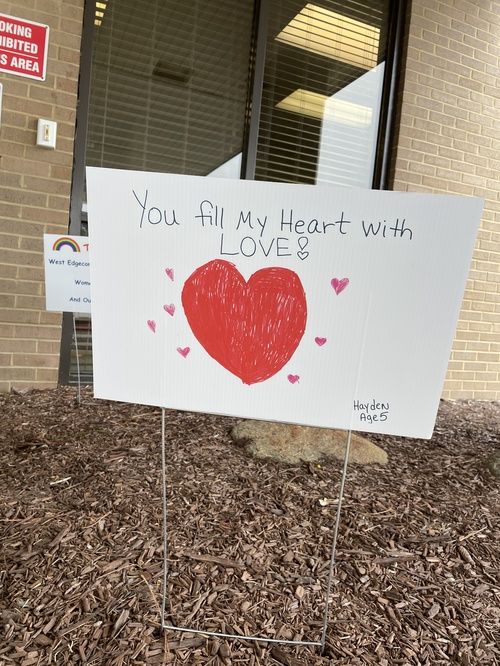 OKING
IBITED
S AREA
You fill My Heart with
LOVE!
Hayden
Age 5
West Edgecom
And Ou